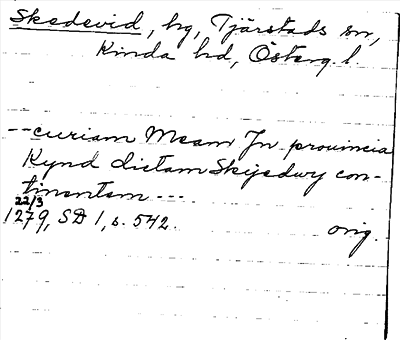 Skedevid, hg, Tjärstads sn,
Kinda hd, Österg. l.
--curiam Meam Jn prouincia
Kynd dictam Skijedwy con-
tinentem ---
22/3
1279, SD 1, s. 542. orig.